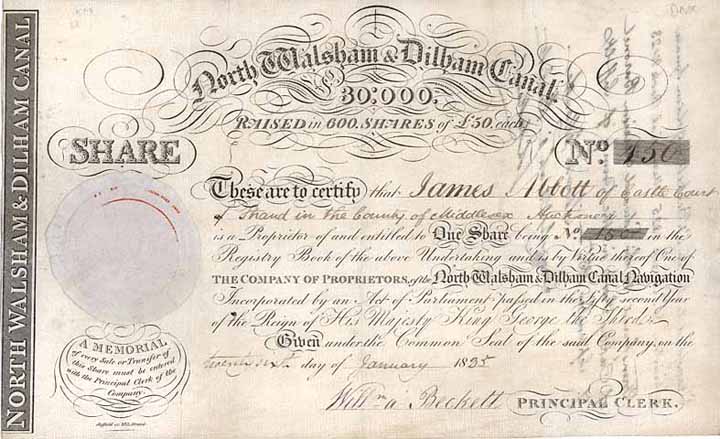 NORTH WALSHAM & DILHAM CANAL
North Walsham & Dilham Canal.
£30,000.
RAISED in 600 SHARES of £50 each
SHARE
No. 150
These are to certify that James Abbott of Castle Court
Strand in the County of Middlesex
is a Proprietor of and entitled to One Share being No. 150 in the
Registry Book of the above Undertaking and is by Virtue thereof One of
THE COMPANY OF PROPRIETORS, of the North Walsham & Dilham Canal Navigation
Incorporated by an Act of Parliament passed in the Fifty second Year
of the Reign of His Majesty King George the Third.
Given under the Common Seal of the said Company, on the
twenty sixth day of January 1825
Willm a' Beckett PRINCIPAL CLERK.
A MEMORIAL
of every Sale or Transfer of
this Share must be entered
with the Principal Clerk of the
Company.